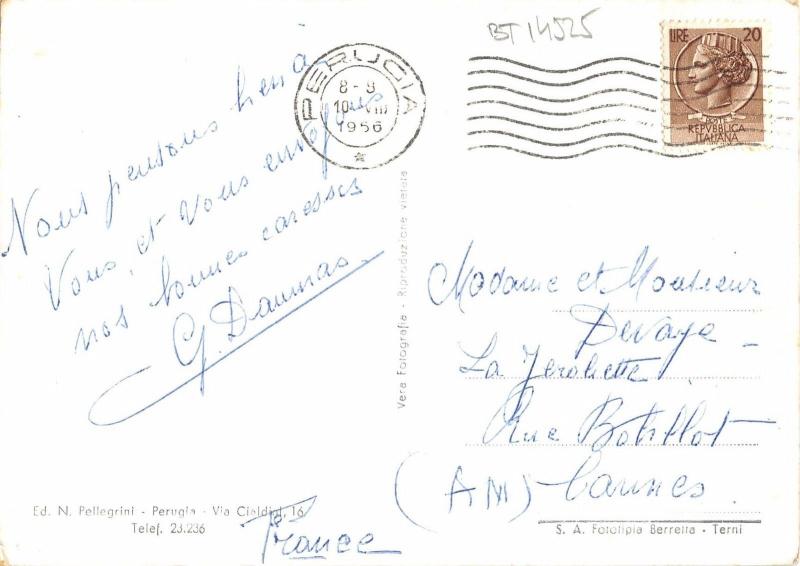 BT 14525
PERUGIA
8-9
10 VIII
1956
LIRE 20
POSTE
REPVBBLICA
ITALIANA
Nous pensons bien à
Vous, et Vous envoyons
nos bonnes caresses
G. Daumas.
Vera Fotografia - Riproduzione vietata
Madame et Monsieur
Devaye -
La
Rue Botillot
(AM) Cannes
France
Ed. N. Pellegrini - Perugia - Via Cialdini, 16
Telef. 23.236
S. A. Fototipia Berretta - Terni